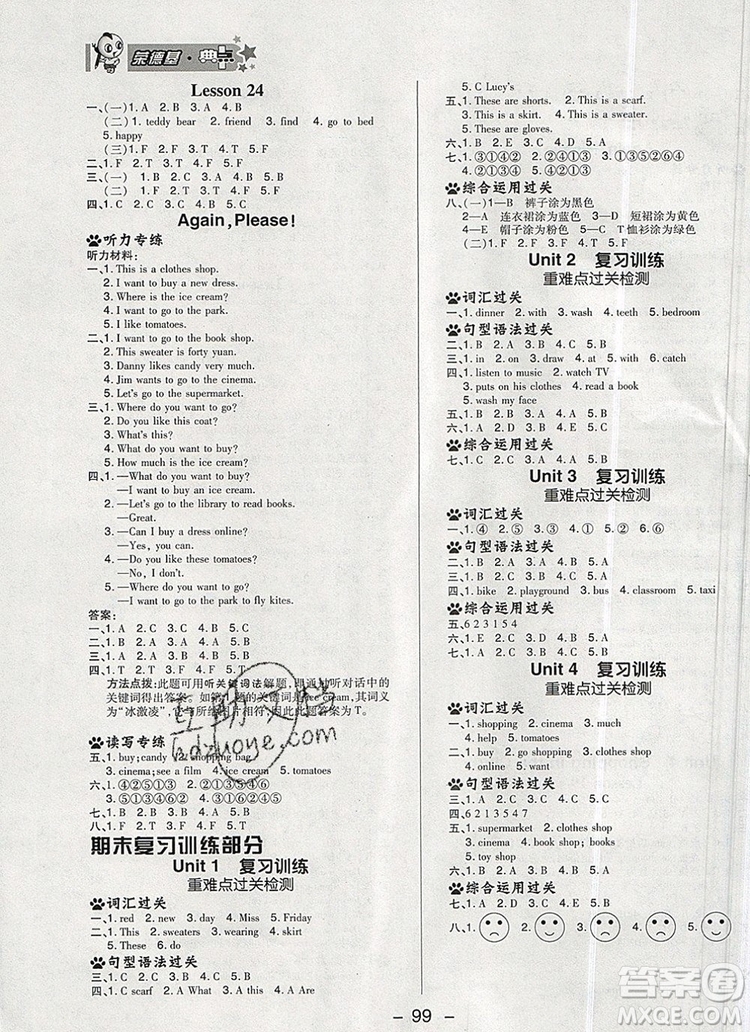 荣德基·典点
Lesson 24
一、(一)1. A 2. B 3. A 4. B
(二)1. teddy bear 2. friend 3. find 4. go to bed
5. happy
(三)1. F 2. F 3. T 4. F
二、1. F 2. T 3. T 4. T
三、(一)1. F 2. T 3. F 4. T
(二) 1. F 2. T 3. F 4. F
四、1. C 2. A 3. A 4. C 5. B
Again, Please!
听力专练
听力材料:
一、1. This is a clothes shop.
2. I want to buy a new dress.
3. Where is the ice cream?
4. I want to go to the park.
5. I like tomatoes.
二、1. I want to go to the book shop.
2. This sweater is forty yuan.
3. Danny likes candy very much.
4. Jim wants to go to the cinema.
5. Let's go to the supermarket.
三、1. Where do you want to go?
2. Do you like this coat?
3. What's this?
4. What do you want to buy?
5. How much is the ice cream?
四、1. —What do you want to buy?
—I want to buy an ice cream.
2. —Let's go to the library to read books.
—Great.
3. —Can I buy a dress online?
—Yes, you can.
4. —Do you like these tomatoes?
—No, I don't.
5. —Where do you want to go?
—I want to go to the park to fly kites.
答案:
一、1. A 2. C 3. C 4. B 5. A
二、1. B 2. C 3. A 4. B 5. C
三、1. C 2. A 3. A 4. B 5. C
四、1. T 2. T 3. F 4. F 5. T
方法点拨:此题可用听关键词法解题,即通过听对话中的
关键词得出答案。如第1题的关键词是ice cream,其词义
为“冰激凌”,它与所给图片相符,故答案为T。
读写专练
五、1. buy;candy 2. shopping bag
3. cinema;see a film 4. ice cream 5. tomatoes
六、1. ①④②⑤③ 2. ①③②⑤④
3. ⑤①③④⑥② 4. ②⑤①③④⑥
七、1. B 2. A 3. C 4. B 5. B
八、1. F 2. T 3. F 4. F 5. T
期末复习训练部分
Unit 1 复习训练
重难点过关检测
词汇过关
一、1. red 2. new 3. gift 4. Miss 5. Friday
二、1. This 2. sweaters 3. wearing 4. skirt
5. These 6. do
句型语法过关
三、1. C 2. A 3. A 4. C 5. B
四、1. C scarf 2. A what 3. A this 4. A Are
5. C Lucy's
五、1. These are shorts. 2. This is a scarf.
3. This is a skirt. 4. This is a sweater.
5. These are gloves.
六、1. B 2. E 3. C 4. D 5. A
七、1. ③①④② 2. ①④③② 3. ③②①④
4. ②①④③ 5. ④②①③
综合运用过关
八、(一)1—B 裤子涂为黑色
2—A 连衣裙涂为蓝色 3—D 短裙涂为黄色
4—E 帽子涂为粉色 5—C T恤衫涂为绿色
(二)1. B 2. A 3. A 4. C
Unit 2 复习训练
重难点过关检测
词汇过关
一、1. dinner 2. with 3. wash 4. teeth 5. bedroom
句型语法过关
二、1. B 2. A 3. C 4. C 5. C
三、1. in 2. on 3. draw 4. at 5. with
四、1. listen to music 2. watch TV
3. puts on his clothes 4. read a book
5. wash my face
五、1. B 2. D 3. C 4. A 5. B
六、1. B 2. E 3. A 4. C 5. D
综合运用过关
七、1. C 2. C 3. A 4. A 5. B
Unit 3 复习训练
重难点过关检测
词汇过关
一、1. ④ 2. ⑤ 3. ③ 4. ① 5. ② 6. ⑥
句型语法过关
二、1. C 2. A 3. A 4. B 5. A
三、1. E 2. D 3. A 4. B 5. C
四、1. bike 2. playground 3. bus 4. classroom 5. taxi
综合运用过关
五、6 2 3 1 5 4
六、1. C 2. B 3. C 4. A 5. A
Unit 4 复习训练
重难点过关检测
词汇过关
一、1. shopping 2. cinema 3. much
4. help 5. tomatoes
二、1. buy 2. go shopping 3. cinema
4. online 5. want
句型语法过关
三、1. C 2. A 3. B 4. C 5. A
四、6 2 1 3 5 4 7
五、1. supermarket 2. clothes shop
3. cinema 4. book shop
5. toy shop
六、1. B 2. A 3. D 4. C
综合运用过关
七、1. C 2. B 3. A 4. A 5. B
八、1. 2. 3. 4. 5.
互助文档
hdzuoye.com
答案圈
MXQE.COM
- 99 -